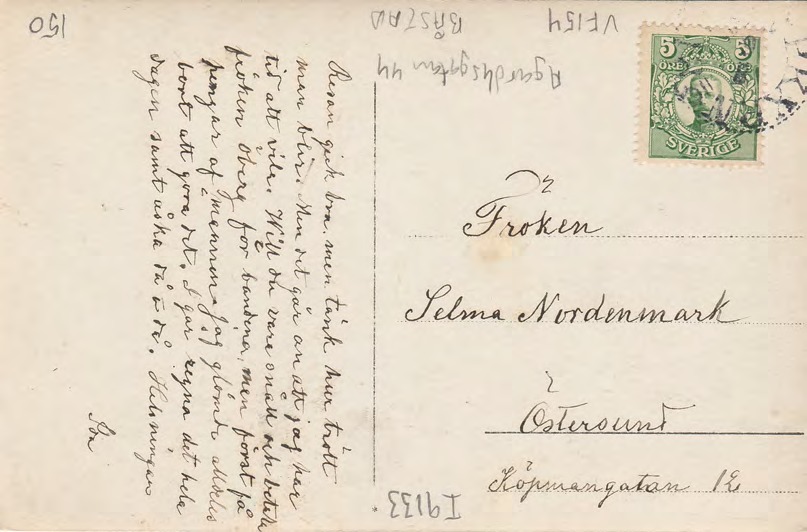 150
BÅSTAD
VF154
Agardhsgatan 44
5 5
ÖRE ÖRE
SVERIGE
Resan gick bra, men tänk hur trött
man blir. Men det går an att jag har
tid att vila. Will du vara snäll och betala
fröken Öberg för banden, men först få
pengar af mannen. Jag glömde alldeles
bort att göra det. I går regna det hela
dagen samt åska då o då. Helsningar
Fröken
Selma Nordenmark
Östersund
Köpmangatan 12
I9133